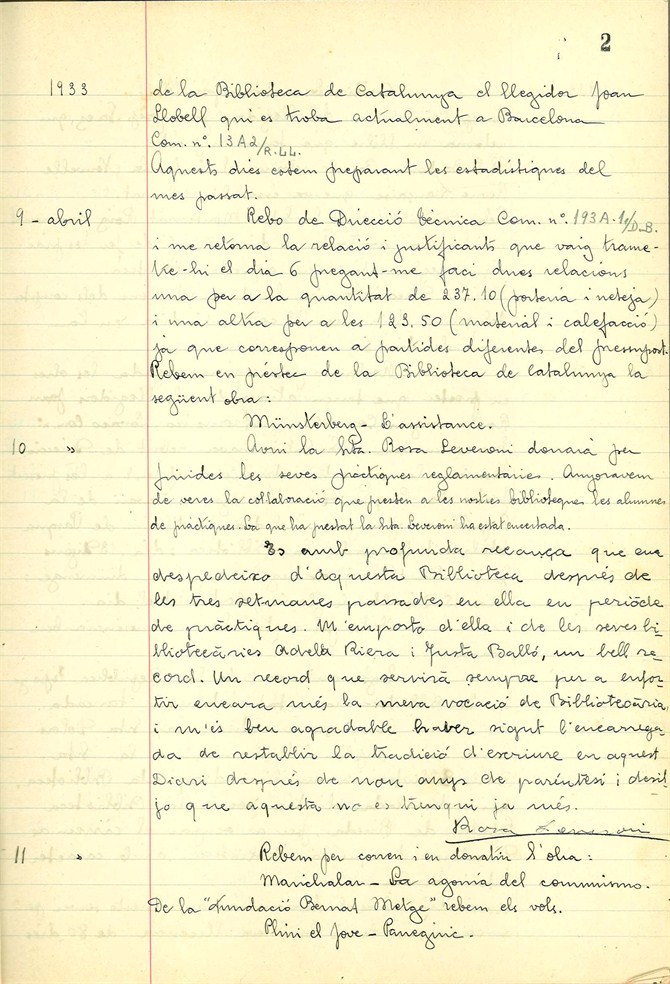 2
1933 de la Biblioteca de Catalunya el llegidor Joan
Llobell qui es troba actualment a Barcelona
Com. nº. 13A2/R.LL.
Aquests dies estem preparant les estadístiques del
mes passat.
9 - abril Rebo de Direcció tècnica Com. nº. 193A-1/D.B.
i me retorna la relació i justificants que vaig trame-
tre-hi el dia 6 pregant-me faci dues relacions
una per a la quantitat de 237.10 (porteria i neteja)
i una altra per a les 123.50 (material i calefacció)
ja que corresponen a partides diferentes del pressupost.
Rebem en préstec de la Biblioteca de Catalunya la
següent obra:
Münsterberg - L'assistance.
10 " Avui la Srta. Rosa Leveroni donarà per
finides les seves pràctiques reglamentàries. Anyoravem
de veres la col·laboració que presten a les nostres biblioteques les alumnes
de pràctiques. La que ha prestat la Srta. Leveroni ha estat encertada.
Es amb profunda recança que em
despedeixo d'aquesta Biblioteca després de
les tres setmanes passades en ella en període
de pràctiques. M'emporto d'ella i de les seves bi
bliotecàries Adela Riera i Justa Balló, un bell re-
cord. Un record que servirà sempre per a enfor-
tir encara més la meva vocació de Bibliotecària
i m'és ben agradable haver sigut l'encarrega
da de restablir la tradició d'escriure en aquest
Diari després de nou anys de parèntesi i desit
jo que aquesta no es trenqui ja més.
Rosa Leveroni
11 " Rebem per correu i en donatiu l'obra:
Marichalar - La agonia del communismo.
De la "Fundació Bernat Metge" rebem els vols.
Plini el Jove - Panegíric.